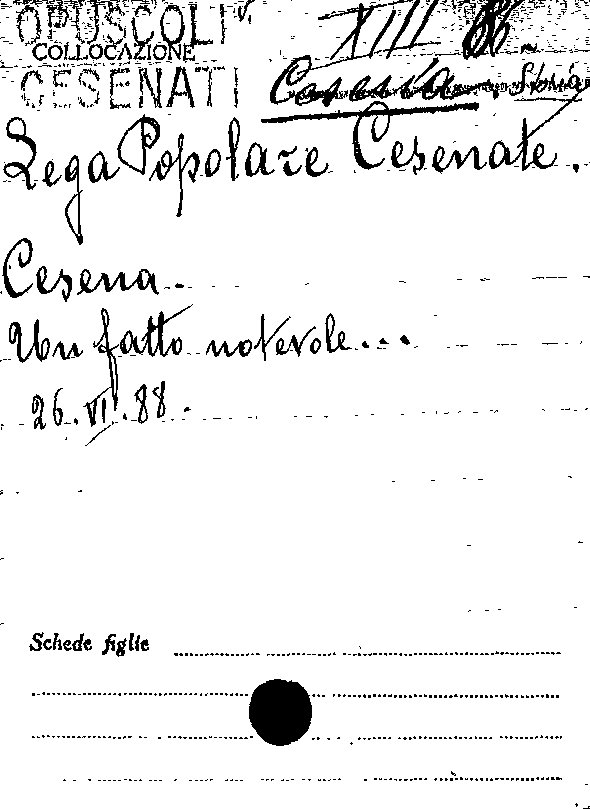 OPUSCOLI XIII
COLLOCAZIONE
CESENATI Cesena. Storia
Lega Popolare Cesenate.
Cesena.
Un fatto notevole...
26.VI.88.
Schede figlie